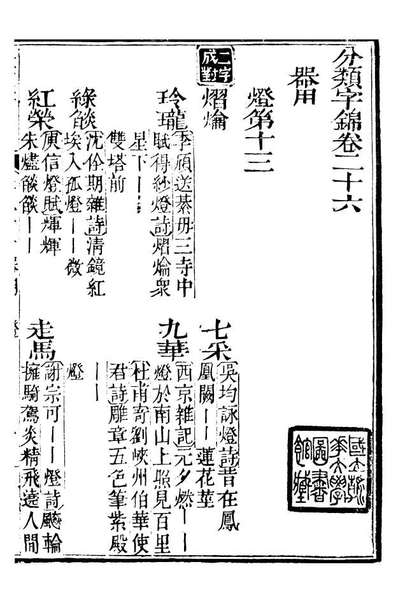 分類字錦卷二十六
器用
燈第十三
二字成對
熠爚
七采
吳均詠燈詩昔在鳳
鳳闕——蓮花莖
玲瓏
李頎送綦毋三寺中
賦得紗燈詩熠爚衆
星下——
雙塔前
九華
西京雜記元夕燃——
燈於南山上照見百里
杜甫寄劉峽州伯華使
君詩雕章五色筆紫殿
——
燈
綠燄
沈佺期雜詩清鏡紅
埃入孤燈——微
紅榮
庾信燈賦輝輝
朱燼燄燄——
走馬
謝宗可——燈詩飈輪
擁騎駕炎精飛遶人間
國立浙江大學圖書館藏